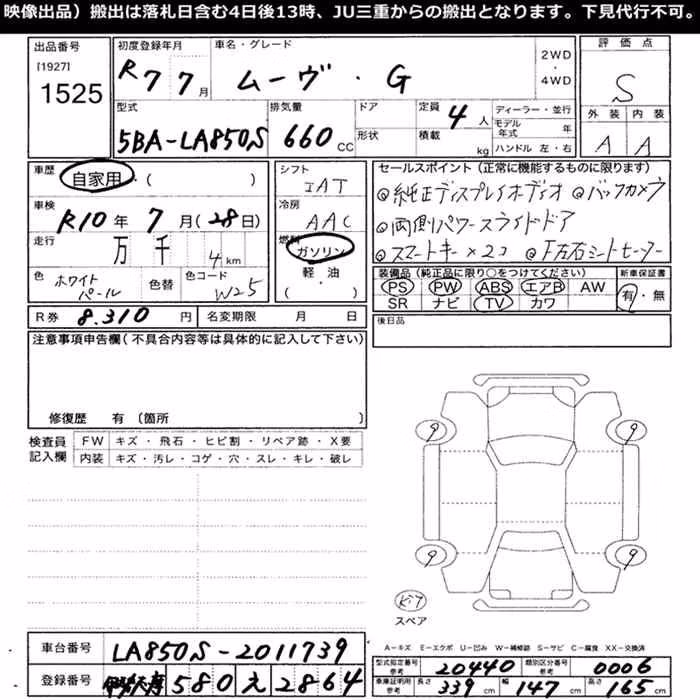 映像出品）搬出は落札日含む4日後13時、JU三重からの搬出となります。下見代行不可。
出品番号 初度登録年月 車名・グレード 2WD ・ 4WD 評価点
[1927] 1525 R7 7月 ムーヴ・G S
型式 排気量 ドア 定員 4人 ディーラー・並行 外装 内装
5BA-LA850S 660 CC 形状 積載 kg モデル年式 年 ハンドル 左・右 A A
車歴 自家用・( ) シフト IAT セールスポイント（正常に機能するものに限ります）
車検 R10年 7月(28日) 冷房 AAC ◎純正ディスプレイオーディオ ◎バックカメラ
◎両側パワースライドドア
走行 万 千 4km 燃料 ガソリン・軽油 ( ) ◎スマートキー×2コ ◎F左右シートヒーター
色 ホワイトパール 色替 色コード W25 装備品（純正品に限り○をつけてください） 新車保証書
PS PW ABS エアB AW 有・無
SR ナビ TV カワ
R券 8.310円 名変期限 月 日 後日品
注意事項申告欄（不具合内容等は具体的に記入して下さい）
修復歴 有 （箇所 ）
検査員記入欄 FW キズ・飛石・ヒビ割・リペア跡・X要
内装 キズ・汚レ・コゲ・穴・スレ・キレ・破レ
9 9
9 9
キット
スペア
A－キズ E－エクボ U－凹み W－補修跡 S－サビ C－腐食 XX－交換済
車台番号 LA850S-2011739
型式指定番号 参考 20440 類別区分番号 参考 0006
登録番号 580 え 2864
車庫証明用 参考 長さ 339cm 幅 147cm 高さ 165cm